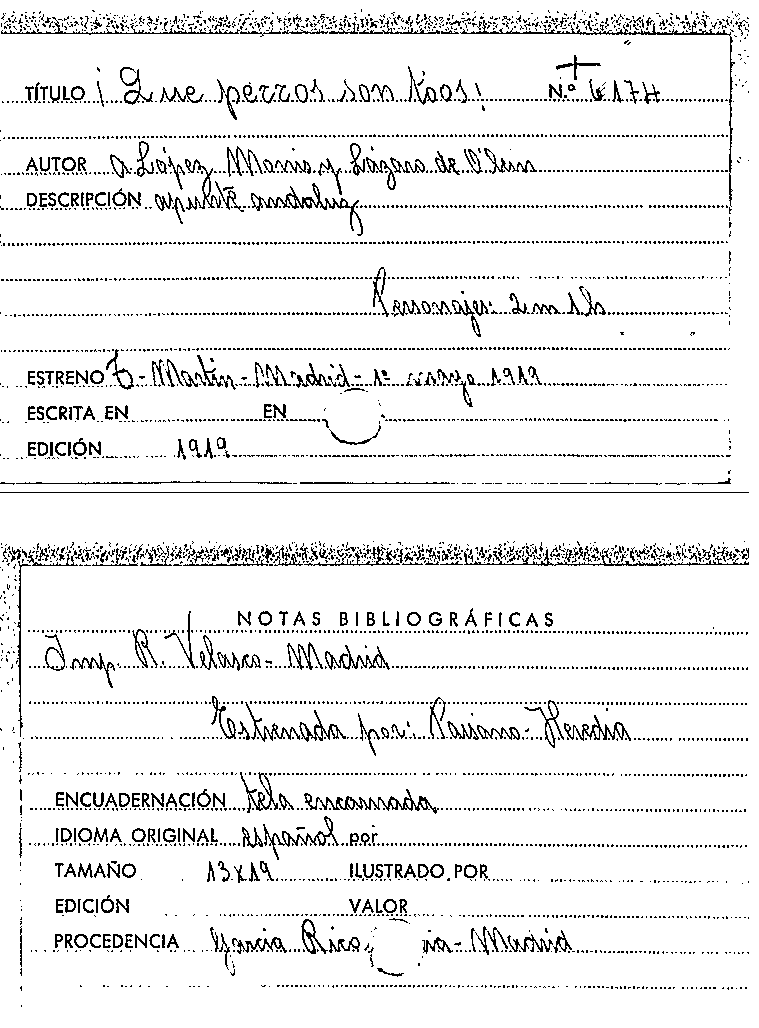 TÍTULO ¡Que perros son toos! N.º 6174
AUTOR A López Monis y Lázaro de O'lein
DESCRIPCIÓN apunte andaluz
Personajes: 2 m 1 h
ESTRENO T- Martin - Madrid - 1º mayo 1919
ESCRITA EN EN
EDICIÓN 1919
NOTAS BIBLIOGRÁFICAS
Imp. R. Velasco - Madrid
Estrenada por: - Heredia
ENCUADERNACIÓN tela encarnada
IDIOMA ORIGINAL español por
TAMAÑO 13x19 ILUSTRADO POR
EDICIÓN VALOR
PROCEDENCIA Garcia Rico, ia - Madrid